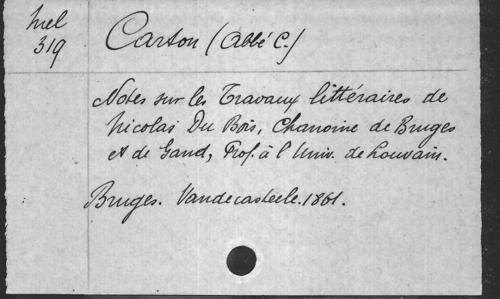 Mel
319
Carton (Abbé C.)
Notes sur les Travaux littéraires de
Nicolas Du Bois, Chanoine de Bruges
et de Gand, Prof. à l'Univ. de Louvain.
Bruges. Vandecasteele. 1861.